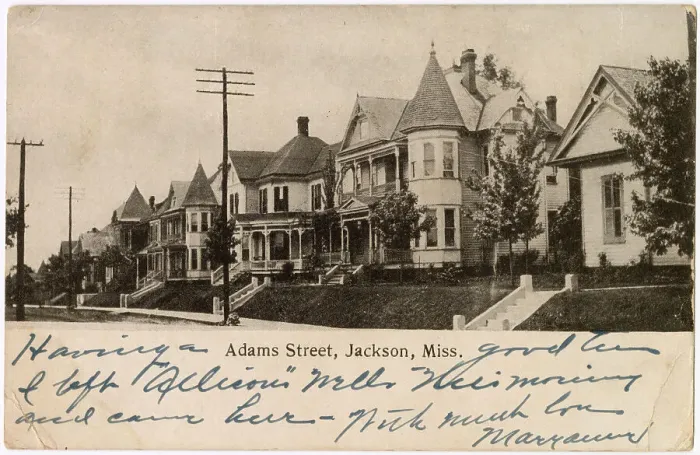 Adams Street, Jackson, Miss.
Having a good time
I left "Allison's" Wells this morning
and came here - With much love